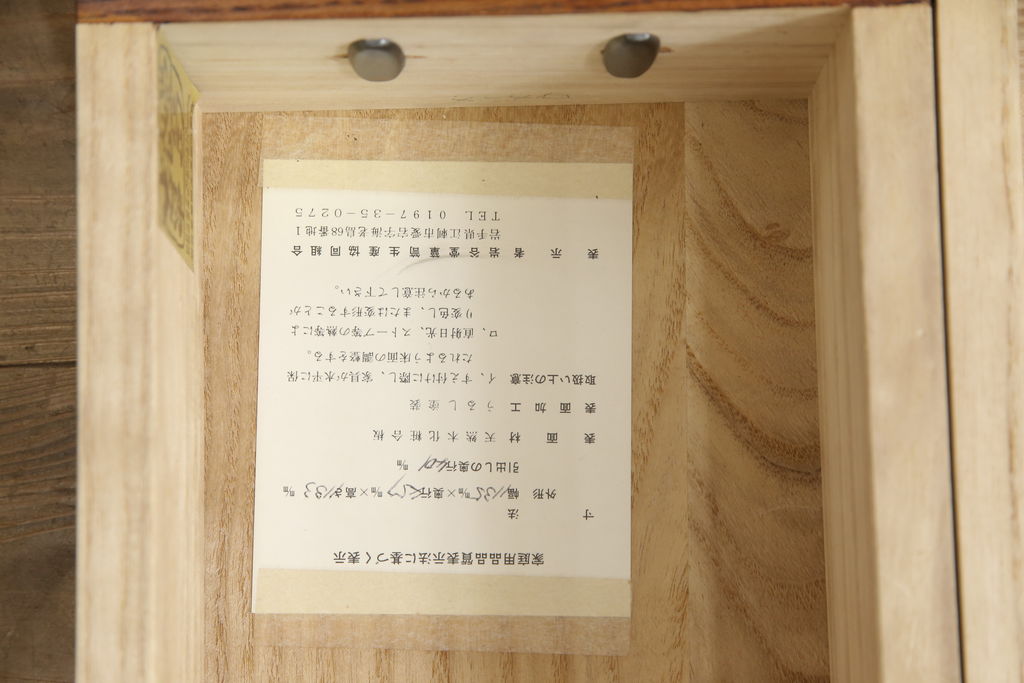 家庭用品品質表示法に基づく表示
寸法
外形 幅 ㎜×奥行 ㎜×高さ ㎜
引出しの奥行 ㎜
表面材 天然木化粧合板
表面加工 うるし塗装
取扱い上の注意 イ、すえ付けに際し、家具が水平に保
たれるよう床面の調整をする。
ロ、直射日光、ストーブ等の熱等によ
り変色し、または変形することが
あるから注意して下さい。
表示者 岩谷堂簞笥生産協同組合
岩手県江刺市愛宕字海老島68番地1
TEL 0197-35-0275